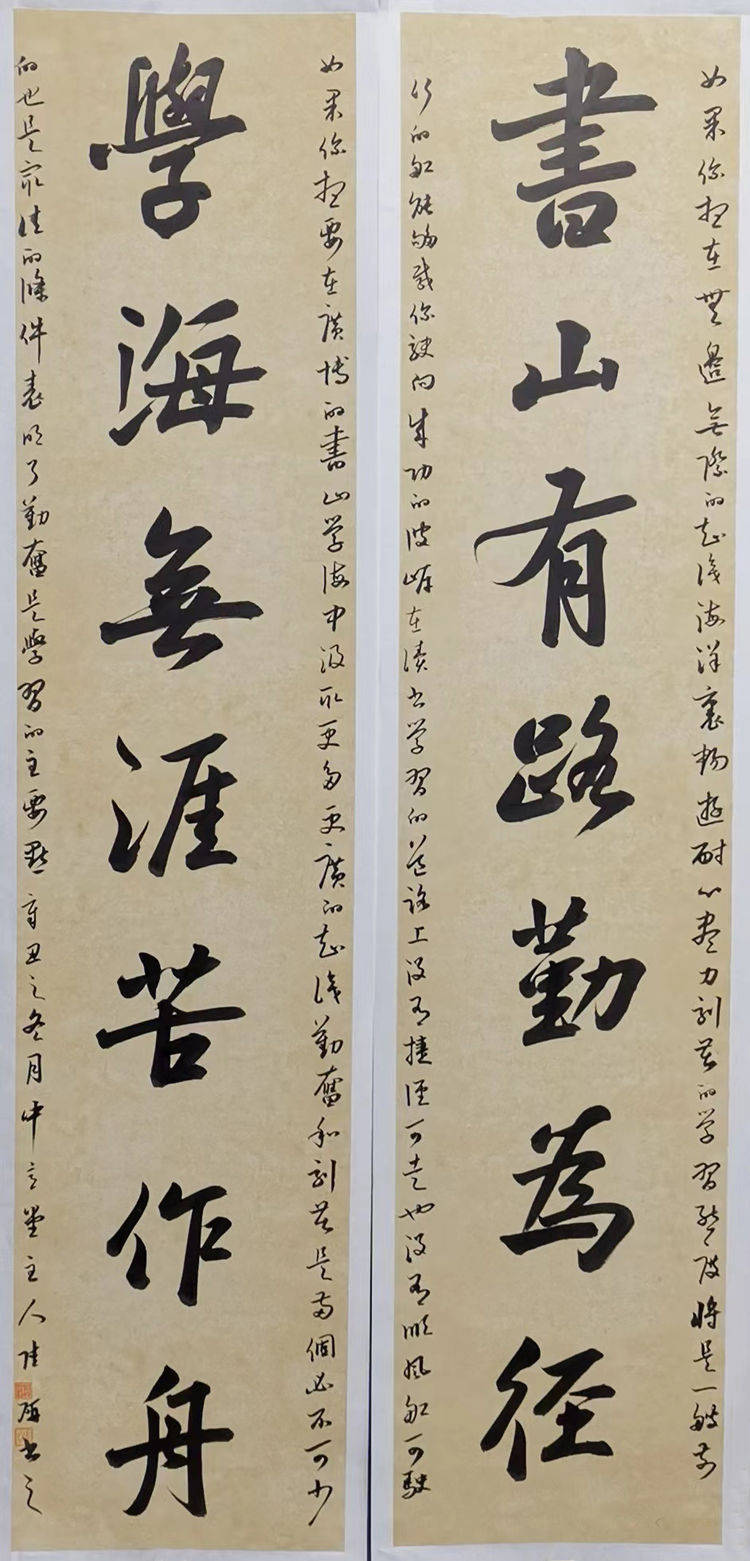 如果你想在無邊無際的知識海洋裏暢遊耐心盡力刻苦的学習態度將是一艘前
書山有路勤為徑
行的船能夠載你駛向成功的彼岸在讀书学習的道路上没有捷徑可走也没有順風船可駛
如果你想要在廣博的書山学海中汲取更多更廣的知識勤奮和刻苦是两個必不可少
學海無涯苦作舟
的也是最佳的條件表明了勤奮是學習的主要點辛丑之冬月中言堂主人书之